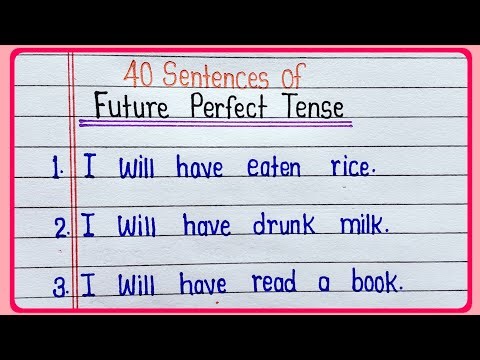 40 Sentences of
Future Perfect Tense
1. I Will have eaten rice.
2. I Will have drunk milk.
3. I Will have read a book.